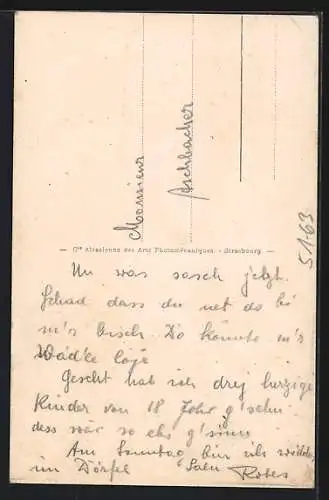 Monsieur
Aschbacher
— Cie Alsacienne des Arts Photomécaniques. - Strasbourg —
5163
Nu was sasch jetzt.
Schad dass du net do bi
m'r bisch. Do könnte m'r
Wädle
Gescht hab ich drej herzige
Kinder von 18 Johr g'sehn
dess wär so ebs g'sinn
Am Sonntag bin ich widder
im Dörfel Salü